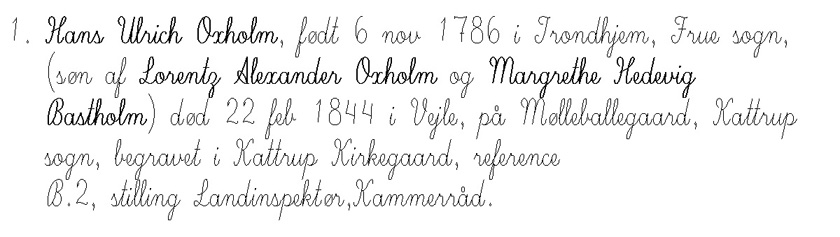 1. Hans Ulrich Oxholm, født 6 nov 1786 i Trondhjem, Frue sogn,
(søn af Lorentz Alexander Oxholm og Margrethe Hedevig
Bastholm) død 22 feb 1844 i Vejle, på Mølleballegaard, Kattrup
sogn, begravet i Kattrup Kirkegaard, reference
B.2, stilling Landinspektør,Kammerråd.